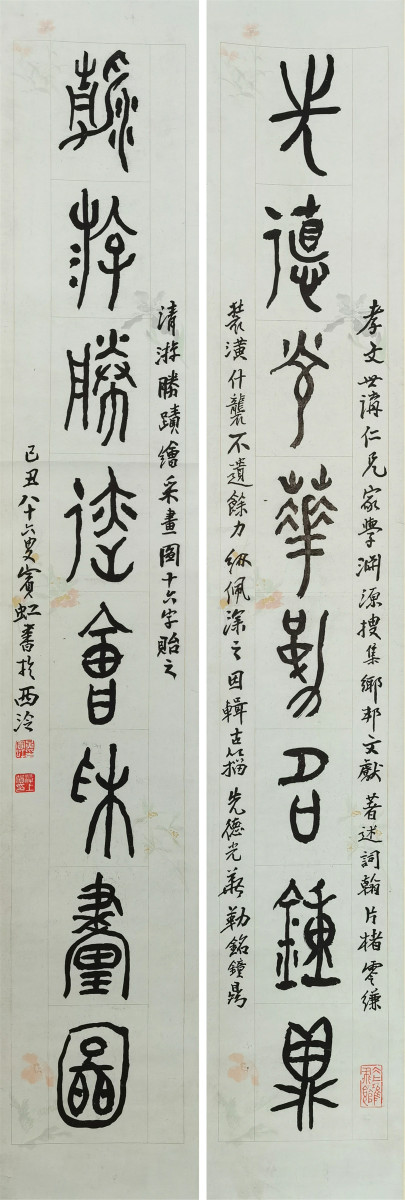 孝文世講仁兄家學淵源搜集鄉邦文獻著述詞翰片楮零縑
先德光華勒名鐘鼎
裝潢什襲不遺餘力紉佩深之因輯古籀先德光華勒銘鐘鼎
清游勝蹟繪采畫圖十六字貽之
清游勝蹟會采畫圖
己丑八十六叟賓虹書於西泠